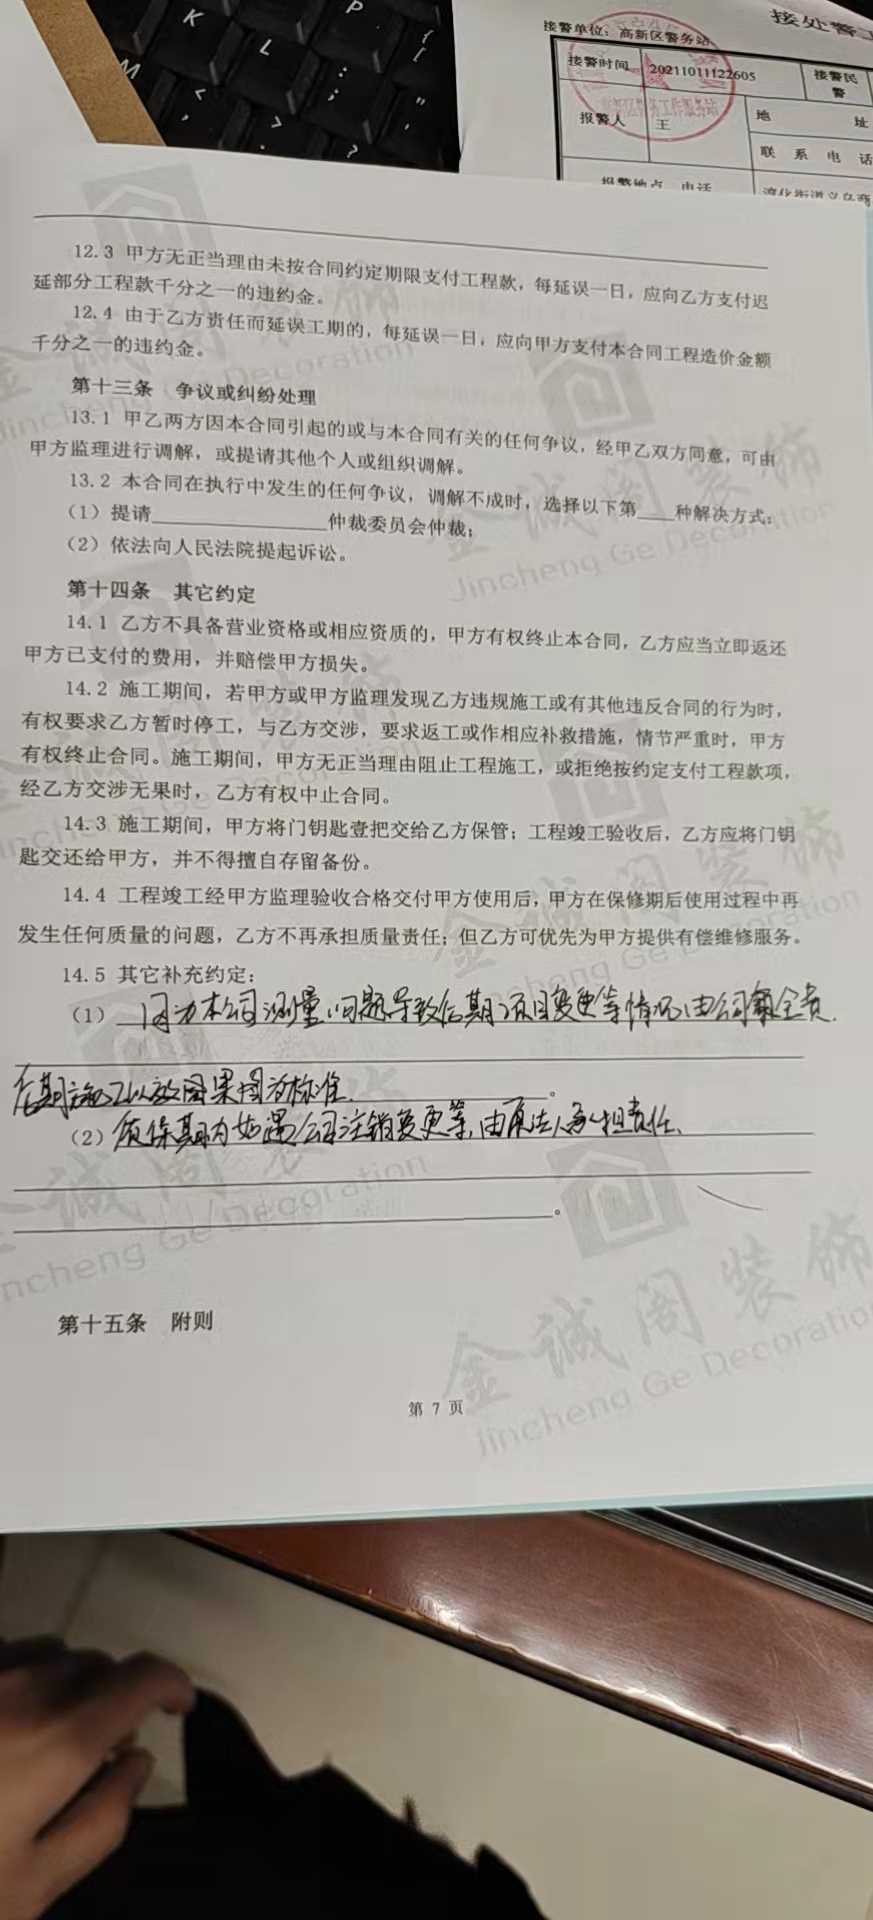 K
L
P
M
接处警
接警单位：高新区警务站
接警时间 20211011122605 接警民警
报警人 王 地 址
联 系 电 话
报警地点 电话 淳化街道义乌商
12.3 甲方无正当理由未按合同约定期限支付工程款，每延误一日，应向乙方支付迟
延部分工程款千分之一的违约金。
12.4 由于乙方责任而延误工期的，每延误一日，应向甲方支付本合同工程造价金额
千分之一的违约金。
第十三条 争议或纠纷处理
13.1 甲乙两方因本合同引起的或与本合同有关的任何争议，经甲乙双方同意，可由
甲方监理进行调解，或提请其他个人或组织调解。
13.2 本合同在执行中发生的任何争议，调解不成时，选择以下第____种解决方式：
（1）提请______________仲裁委员会仲裁；
（2）依法向人民法院提起诉讼。
第十四条 其它约定
14.1 乙方不具备营业资格或相应资质的，甲方有权终止本合同，乙方应当立即返还
甲方已支付的费用，并赔偿甲方损失。
14.2 施工期间，若甲方或甲方监理发现乙方违规施工或有其他违反合同的行为时，
有权要求乙方暂时停工，与乙方交涉，要求返工或作相应补救措施，情节严重时，甲方
有权终止合同。施工期间，甲方无正当理由阻止工程施工，或拒绝按约定支付工程款项，
经乙方交涉无果时，乙方有权中止合同。
14.3 施工期间，甲方将门钥匙壹把交给乙方保管；工程竣工验收后，乙方应将门钥
匙交还给甲方，并不得擅自存留备份。
14.4 工程竣工经甲方监理验收合格交付甲方使用后，甲方在保修期后使用过程中再
发生任何质量的问题，乙方不再承担质量责任；但乙方可优先为甲方提供有偿维修服务。
14.5 其它补充约定：
（1）因为本公司测量问题导致后期项目变更等情况由公司全责.
后期施工以效图果图为标准.
（2）质保期内如遇公司注销变更等,由原法人承担责任.
第十五条 附则
第 7 页
金诚阁装饰
Jincheng Ge Decoration